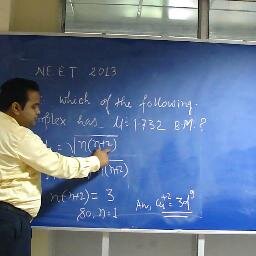 NEET 2013
which of the following.
plex has μ=1.732 B.M.?
= √n(n+2)
n(n+2)
n(n+2) = 3
So, n=1
Ans, Cu⁺² = 3d⁹